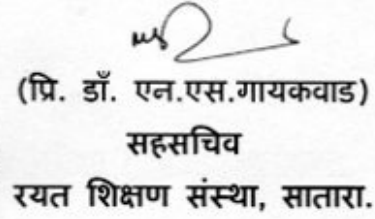 (प्रि. डॉ. एन.एस.गायकवाड)
सहसचिव
रयत शिक्षण संस्था, सातारा.